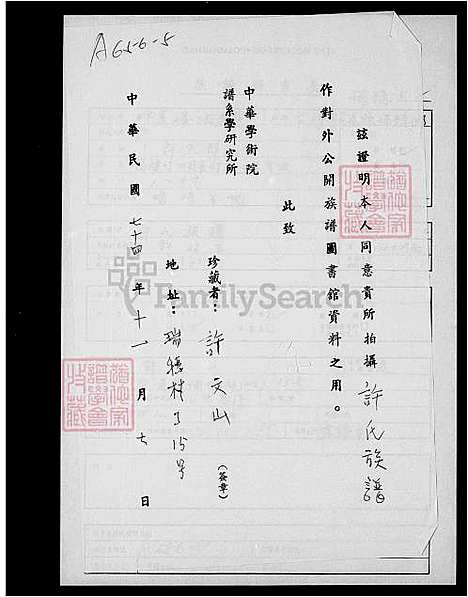 A656-5
茲證明本人同意貴所拍攝許氏族譜
作對外公開族譜圖書館資料之用。
此致
中華學術院
譜系學研究所
珍藏者：許文山（簽章）
地址：瑞穗村
15号
中華民國七十四年十一月七日
FamilySearch